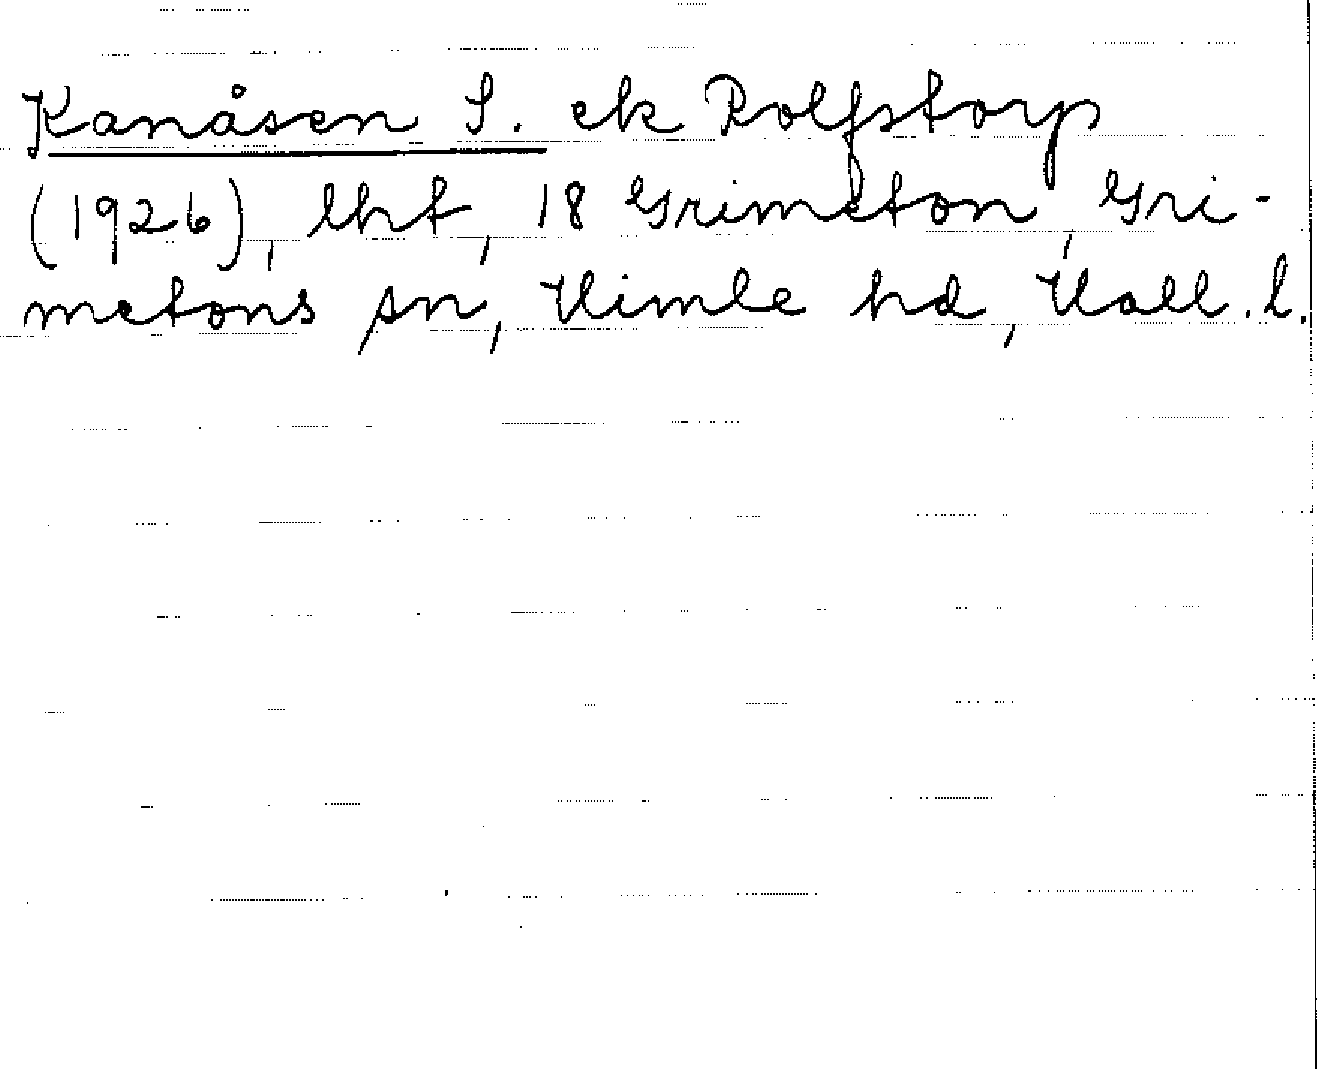 Kanåsen S. ek Rolfstorp
(1926), lht, 18 Grimeton, Gri-
metons sn, Himle hd, Hall. l.